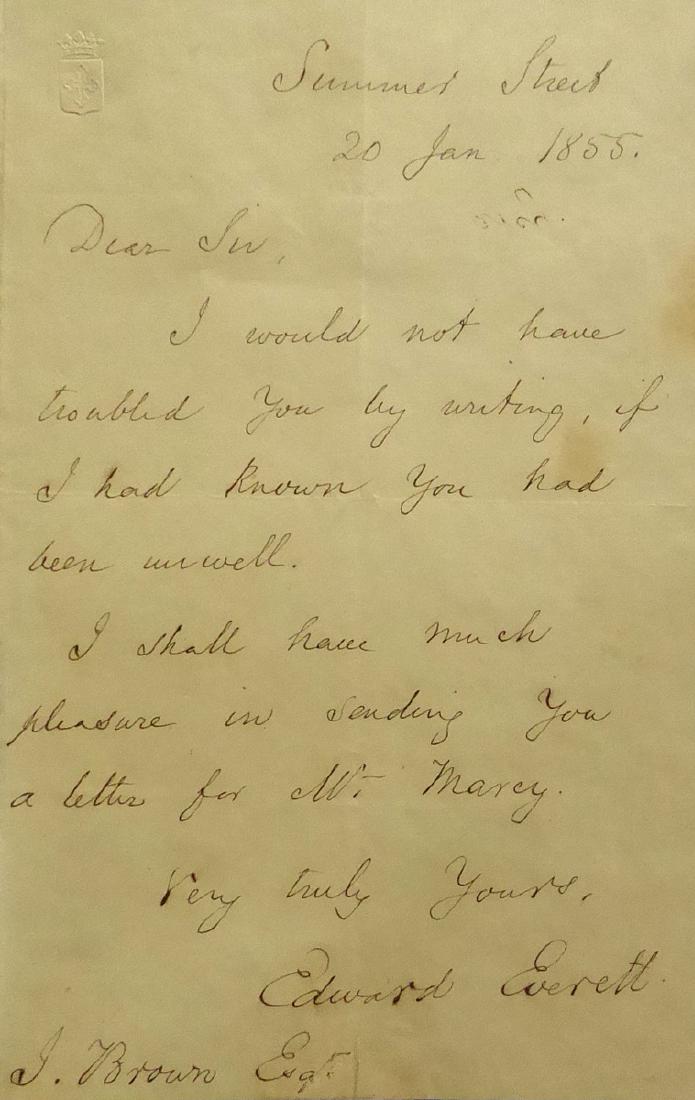 Summer Street
20 Jan 1855.
Dear Sir,
I would not have
troubled You by writing, if
I had known You had
been unwell.
I shall have much
pleasure in sending You
a letter for Mr. Marcy.
Very truly Yours,
Edward Everett.
J. Brown Esqr.